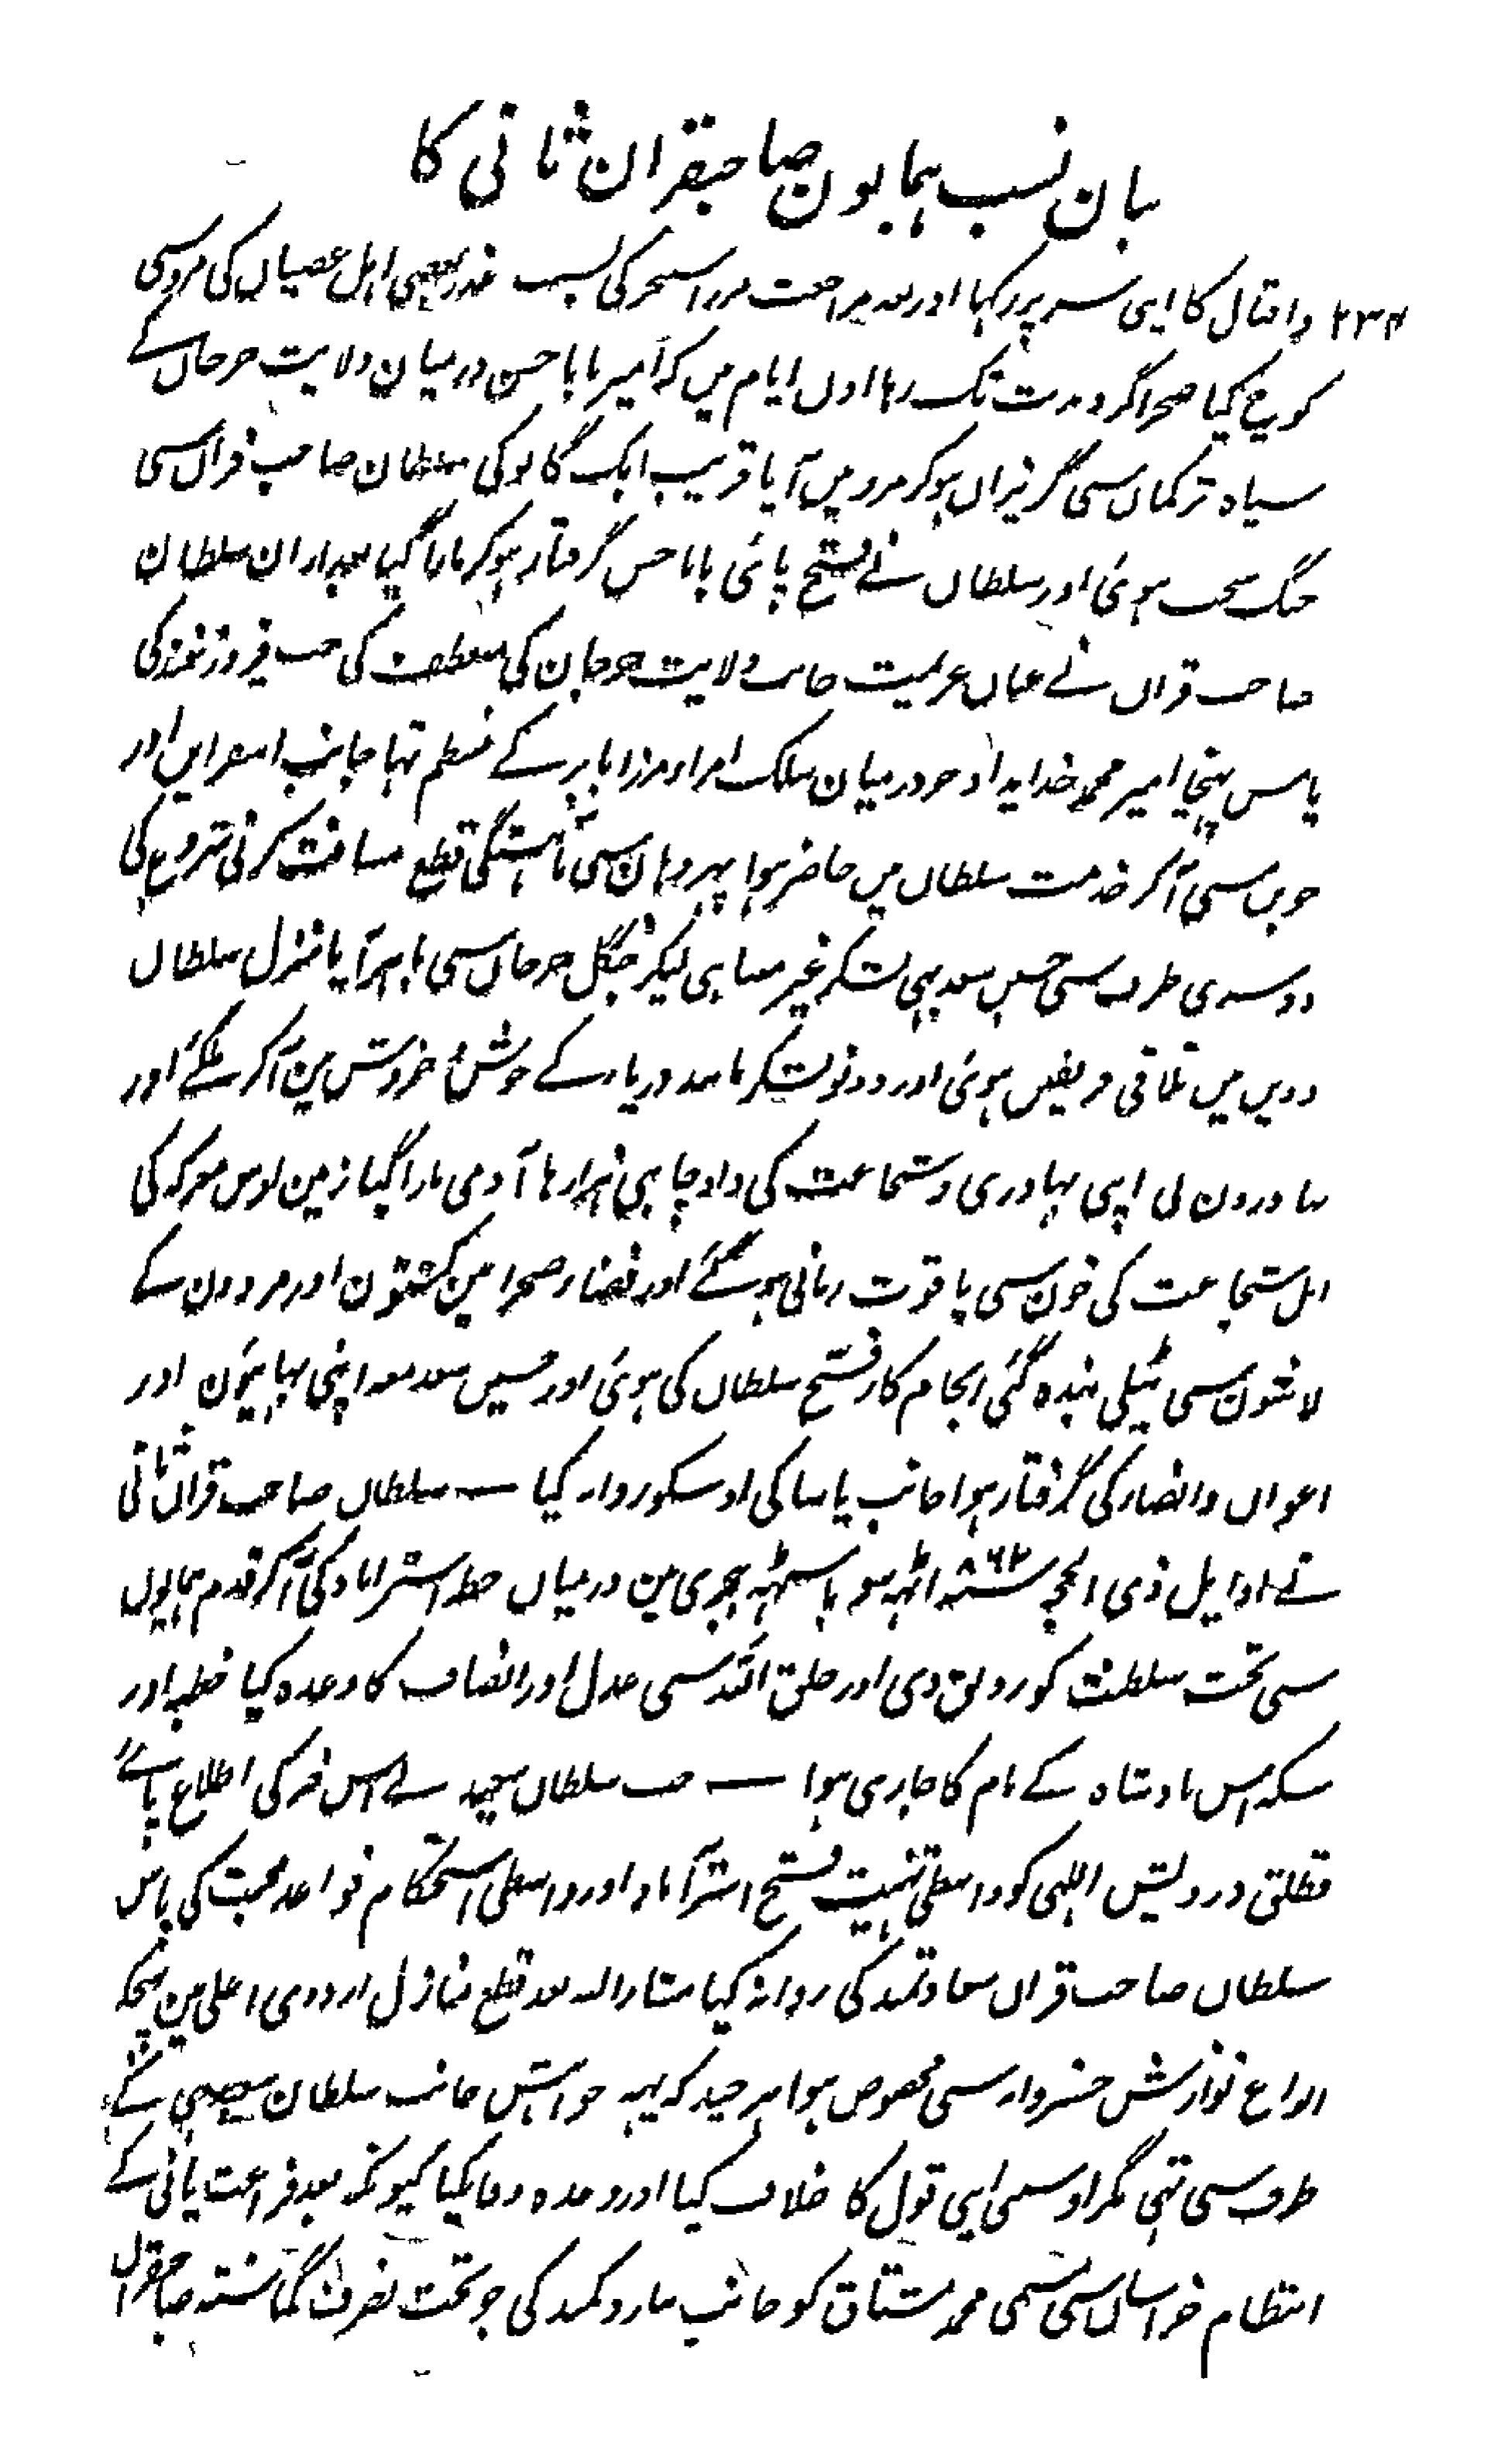 بیان نسب ہمایون صاحبقران ثانی کا
۲۳۴ واقبال کا اپنی سر پر رکہا اور بعد مراجعت مرزا سنجر کی بسبب غدر بعضی اہل عصیاں کی مرو سی
کوچ کیا صحرا گرد مدت تک رہا اول ایام میں کہ امیر بابا حسن درمیان ولایت جرجاں کے
سپاہ ترکماں سی گریزاں ہوکر مرو میں آیا قریب ایک گانو کی سلطان صاحب قراں سی
جنگ سخت ہوئی اور سلطاں نے فتح پائی بابا حسن گرفتار ہوکر مارا گیا بعد ازان سلطان
صاحب قراں نے عناں عزیمت جانب ولایت جرجان کی منعطف کی جب فیروز غند کی
پاس پہنچا امیر محمد خدایداد جو درمیان سلک امراء مرزا بابر کے منتظم تہا جانب اسفراین اور
جوین سی آکر خدمت سلطاں میں حاضر ہوا پہر وہان سی باہستگی قطع مسافت کرنی شروع کی
دوسری طرف سی حسین سعد بہی لشکر غیر متناہی لیکر جنگل جرجاں سی باہر آیا منزل سلطاں
دویں میں تلاقی فریقین ہوئی اور دونو لشکر مانند دریا کے جوش و خروش مین آکر ملگئے اور
بہادرون نی اپنی بہادری و شجاعت کی داد چاہی ہزارہا آدمی مارا گیا زمین اوس معرکہ کی
اہل شجاعت کی خون سی یاقوت رمانی ہوگئے اور فضاء صحرا مین کشتون اور مردون کے
لاشون سی ٹیلی بندہ گئی انجام کار فتح سلطاں کی ہوئی اور حسین سعد معہ اپنی بہائیون اور
اعوان وانصار کی گرفتار ہوا جانب یاسا کی اوسکو روانہ کیا — سلطاں صاحب قراں ثانی
نے اوایل ذی الحجہ ۸۶۲ سنہ اٹہہ سو باسٹہہ ہجری مین درمیاں خطہ استراباد کی آکر قدم ہمایوں
سی تخت سلطنت کو رونق دی اور خلق اللہ سی عدل اور انصاف کا وعدہ کیا خطبہ اور
سکہ اس بادشاہ کے نام کا جاری ہوا — جب سلطاں سعید نے اس خبر کی اطلاع پائے
قطلق درویش ایلچی کو واسطی تہنیت فتح استرآباد اور واسطی استحکام قواعد محبت کی پاس
سلطاں صاحب قراں سعادتمند کی روانہ کیا مشار الیہ بعد قطع منازل اردوی اعلی مین پہنچکر
انواع نوازش خسروانہ سی مخصوص ہوا ہر چند کہ یہہ خواہش جانب سلطان سعید ہی کے
طرف سی تہی مگر اوسی اپنی قول کا خلاف کیا اور وعدہ وفا نکیا کیونکہ بعد فراغت پانی کے
انتظام خراساں سی مسمی محمد مشتاق کو جانب مازو کمند کی جو تحت تصرف گماشتہ صاحبقراں